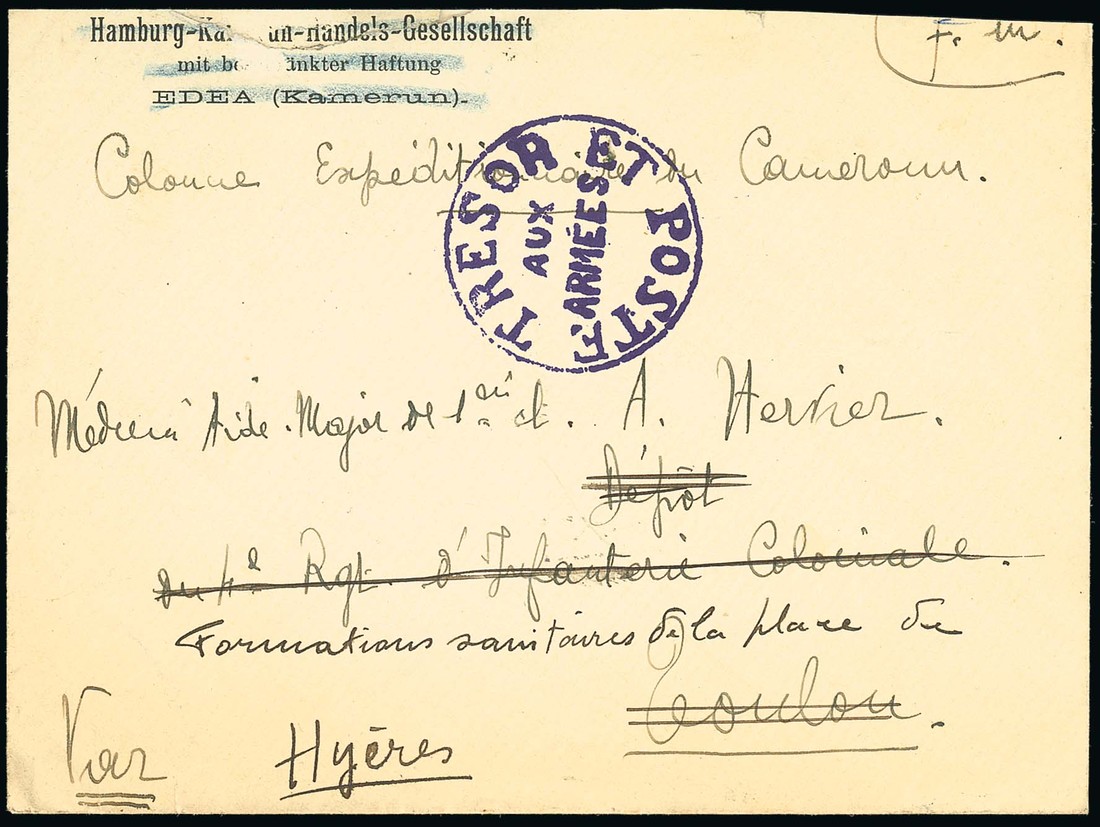 Hamburg-Ka un-Handels-Gesellschaft
mit be änkter Haftung
EDEA (Kamerun).
F. m.
Colonne Expéditionnaire du Cameroun.
TRESOR ET POSTE
AUX
ARMÉES
Médecin Aide-Major de 1ère cl. A. Hervier.
Dépôt
du 4e Rgt. d'Infanterie Coloniale.
Formations sanitaires de la place de
Toulon.
Var Hyères